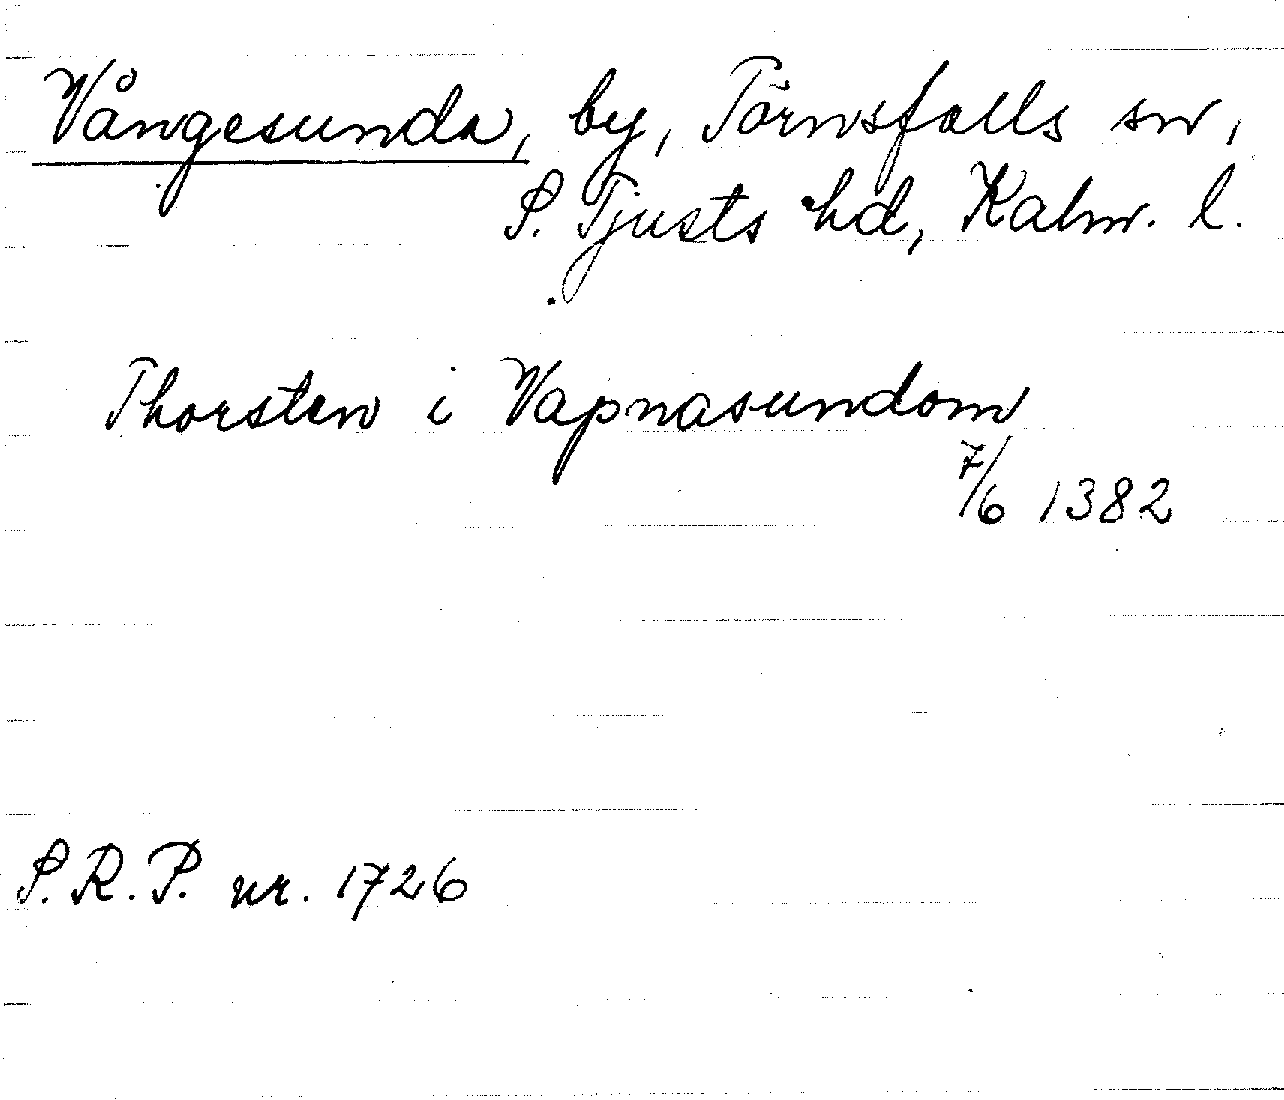 Vångesunda, by, Törnsfalls sn,
S. Tjusts hd, Kalm. l.
Thorsten i Vapnasundom
7/6 1382
S.R.P. nr. 1726